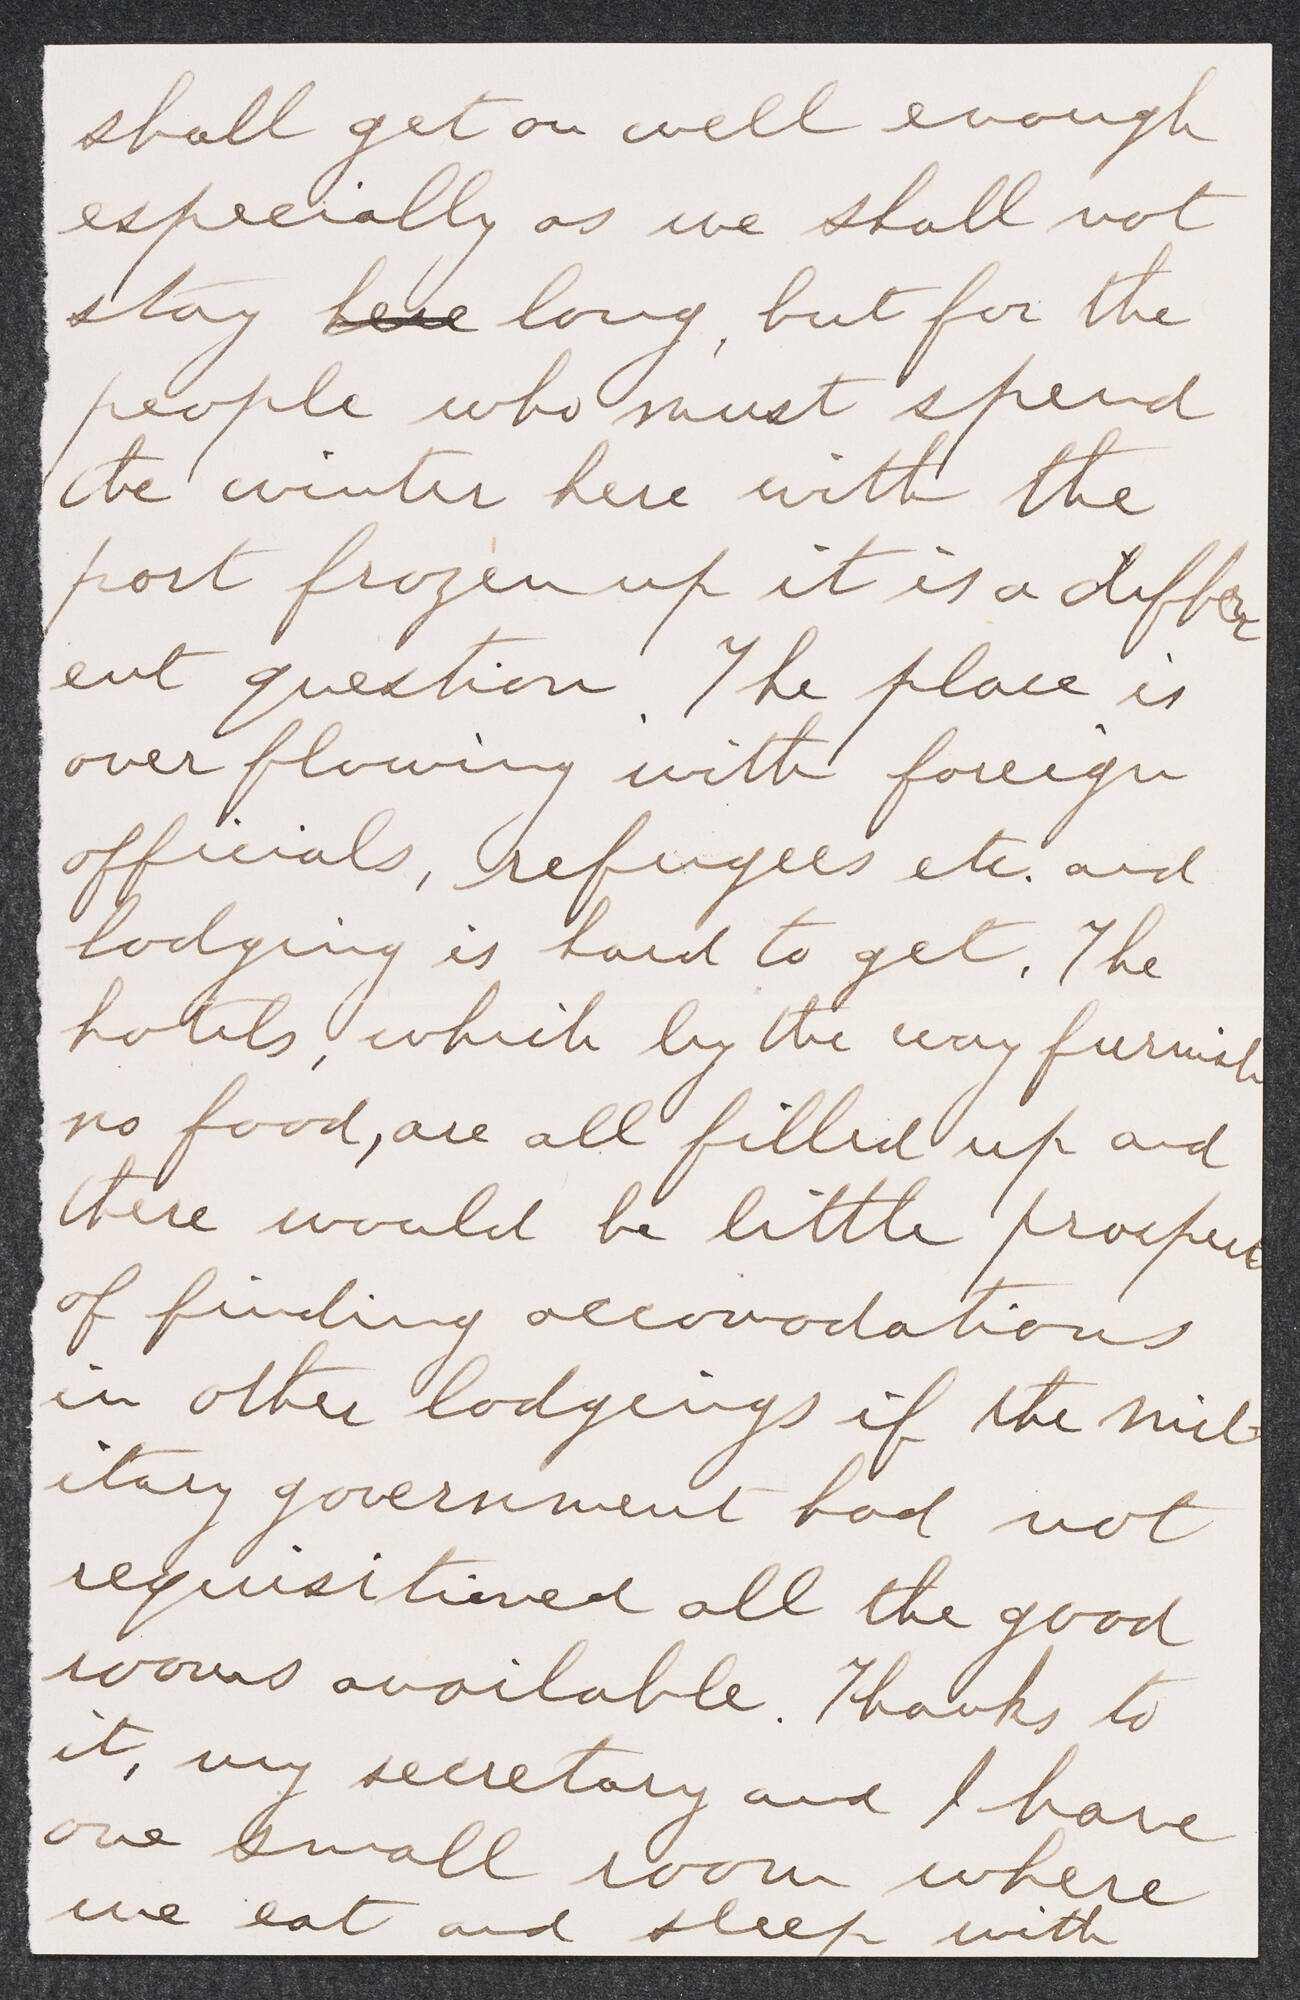 shall get on well enough
especially as we shall not
stay here long, but for the
people who must spend
the winter here with the
port frozen up it is a differ
ent question. The place is
over flowing with foreign
officials, refugees etc. and
lodging is hard to get. The
hotels, which by the way furnish
no food, are all filled up and
there would be little prospect
of finding accomodations
in other lodgeings if the mil-
itary government had not
requisitioned all the good
rooms available. Thanks to
it, my secretary and I have
one small room where
we eat and sleep with